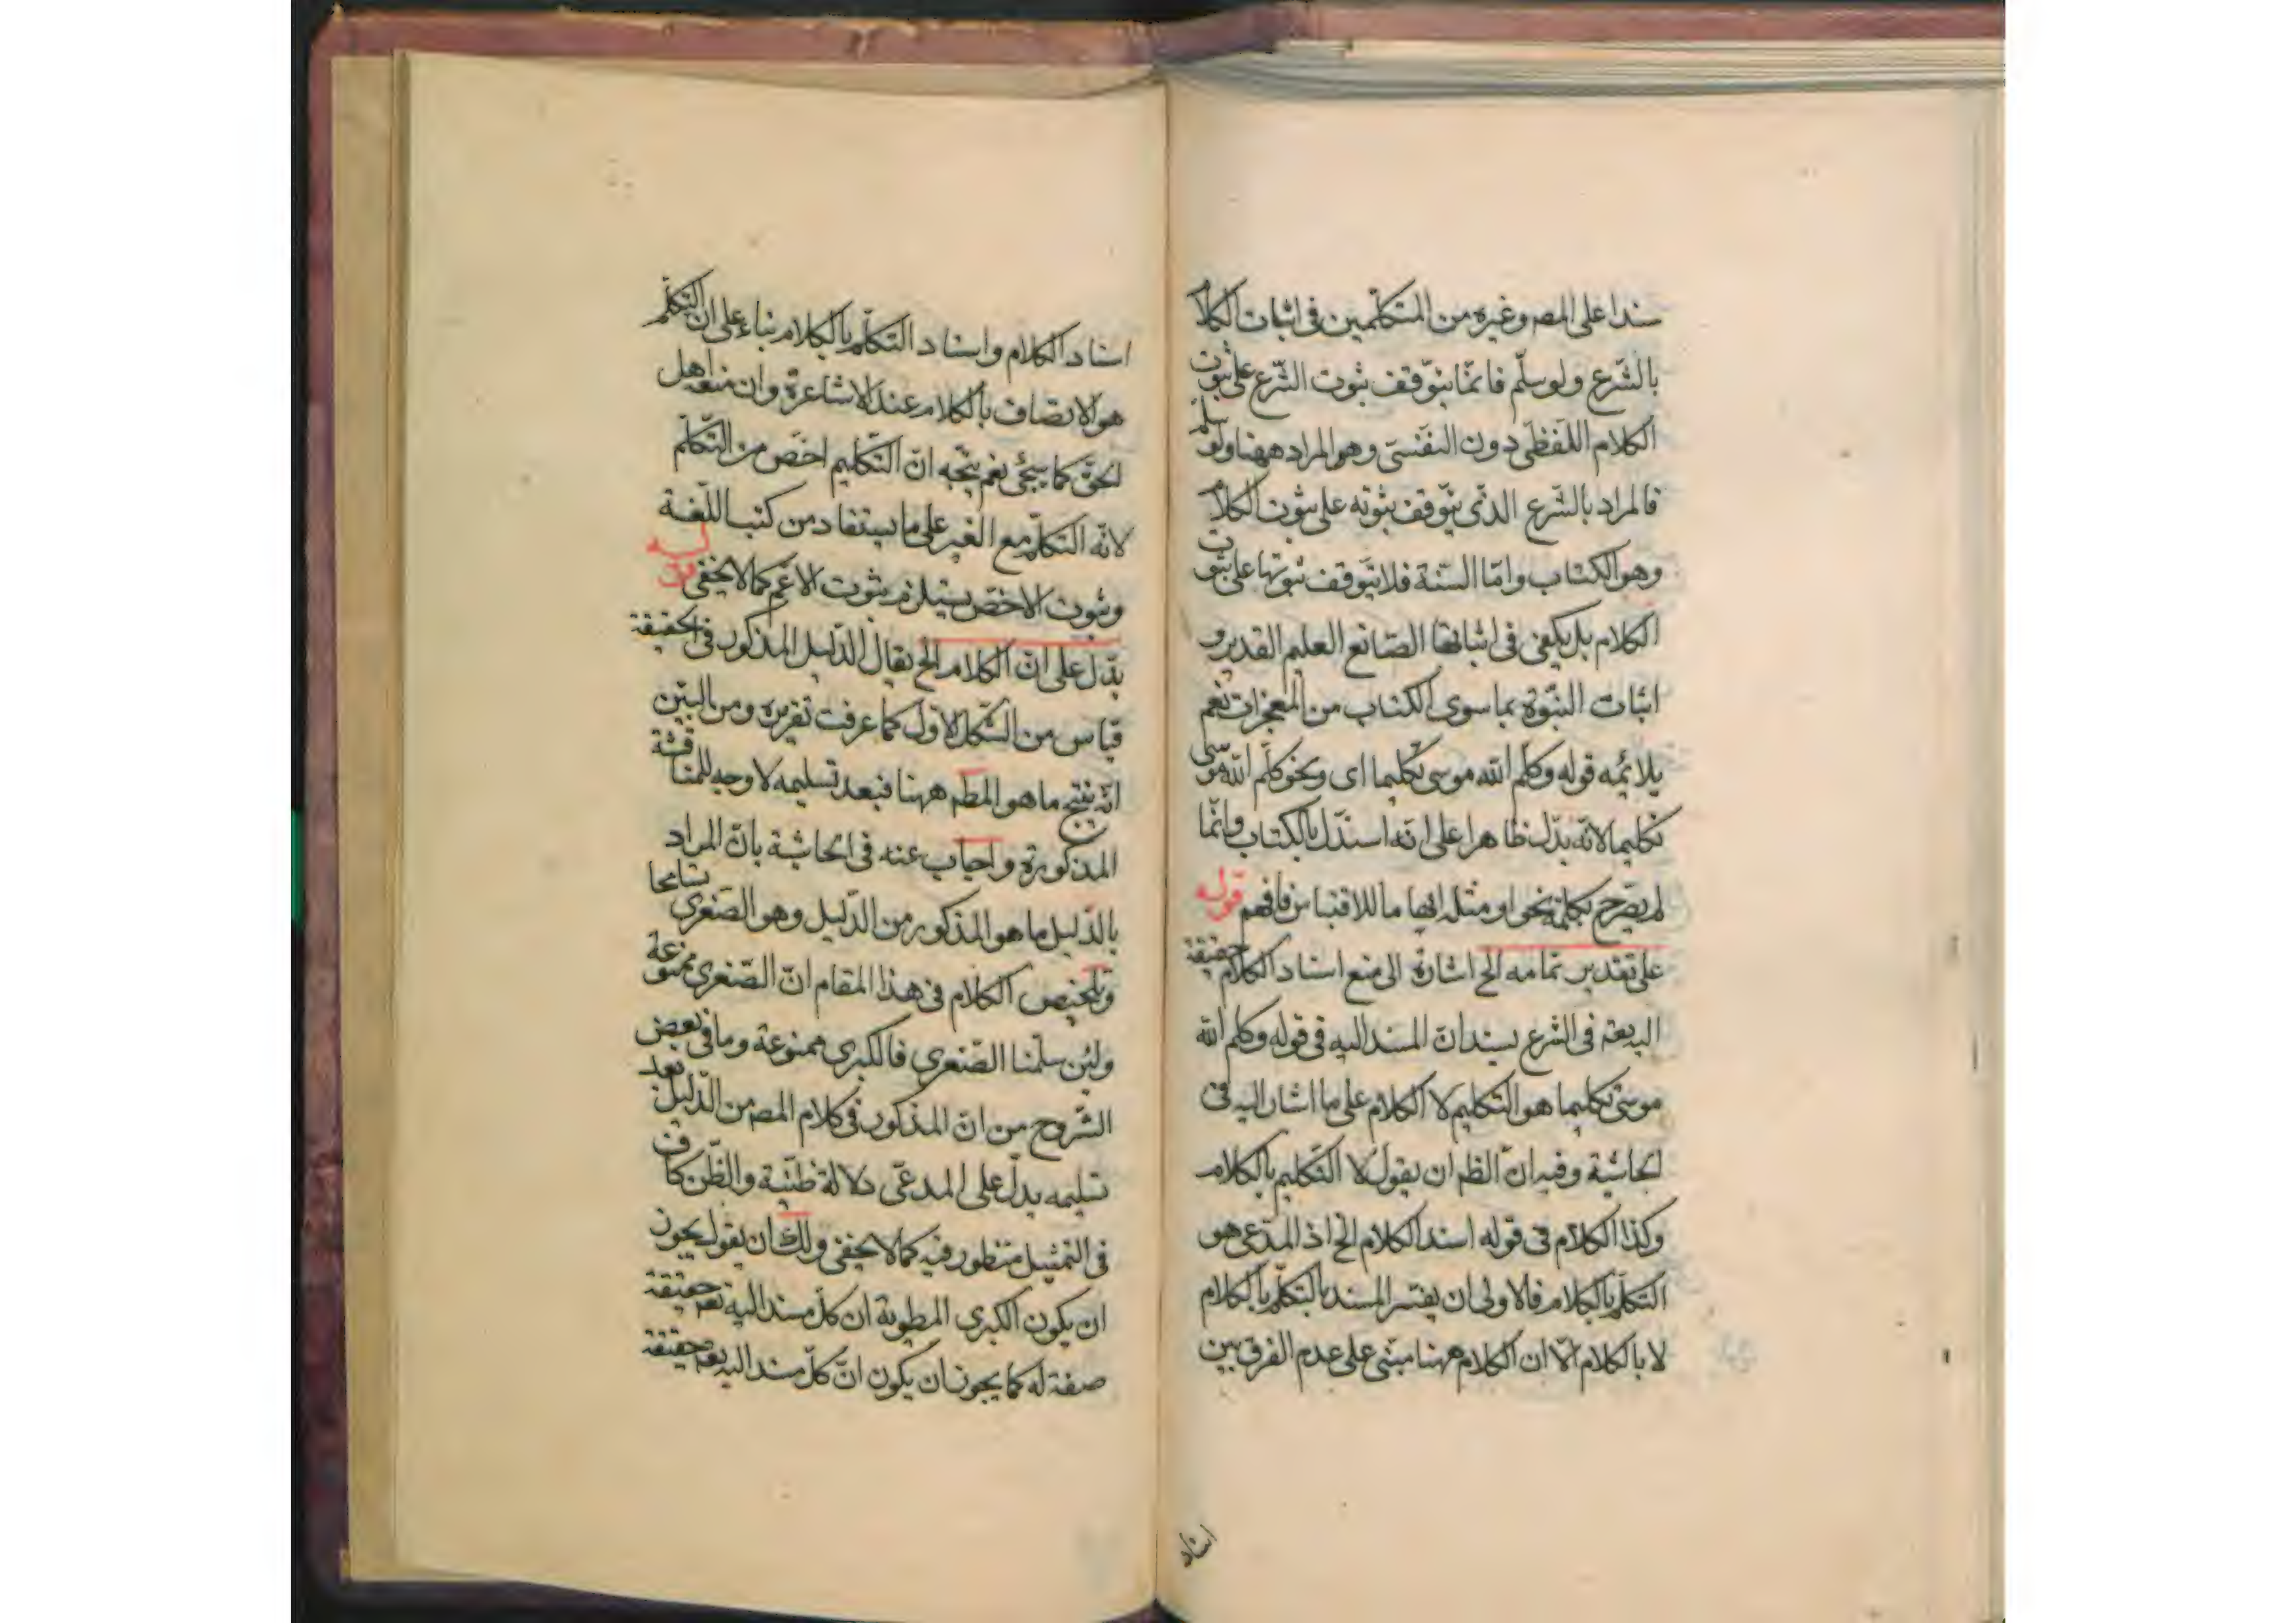 سندا على المصر وغيره من المتكلمين فى اثبات الكلام
بالشّرع ولو سلّم فانّما يتوّقف ثبوت الشّرع على ثبوت
الكلام اللّفظى دون النفسّى وهو المراد ههنا ولو سلّم
فالمراد بالشّرع الذى يتوّقف ثبوته على ثبوت الكلام
وهو الكتاب وامّا السّنة فلا يتوّقف ثبوتها على ثبوت
الكلام بل يكفى فى اثباتها الصّانع العليم القدير و
اثبات النبّوة بما سوى الكتاب من المعجزات نعم
يلائمه قوله وكلّم الله موسى تكليما اى ونحو كلّم الله موسى
تكليما لانّه يدّل ظاهرا على انّه استدّل بالكتاب وانّما
لم يصّرح بكلمة نحو او مثله ايهاما للاقتباس فافهم قوله
على تقدير تمامه الخ اشارة الى منع اسناد الكلام حقيقة
اليه تعـ فى الشرع بسند انّ المسند اليه فى قوله وكلم الله
موسى تكليما هو التّكليم لا الكلام على ما اشار اليه فى
الحاشية وفيه انّ الظـ ان يقول لا التّكليم بالكلام
وكذا الكلام فى قوله اسند الكلام الخ اذ المدّعى هو
التكلّم بالكلام فالاولى ان يفسّر المسند بالتكلّم بالكلام
لا بالكلام الّا ان الكلام ههنا مبنّى على عدم الفرق بين
اسناد
اسناد الكلام واسناد التكلّم بالكلام بناء على ان التكلّم
هو الاتصّاف بالكلام عند الاشاعرة وان منعه اهل
الحقّ كما سيجئ نعم يتّجه انّ التّكليم اخصّ من التّكلم
لانّه التكلّم مع الغير على ما يستفاد من كتب اللّغة
وثبوت الاخصّ يستلزم ثبوت الاعّم كما لا يخفى قوله
يدّل على انّ الكلام الخ يقال الدّليل المذكور فى الحقيقة
قياس من الشّكل الاوّل كما عرفت تقريره ومن البيّن
انّه ينتج ما هو المطـ ههنا فبعد تسليمه لا وجه للمناقشة
المذكورة واجاب عنه فى الحاشية بانّ المراد
بالدّليل ما هو المذكور من الدّليل وهو الصّغرى تسامحا
وتلخيص الكلام فى هذا المقام انّ الصّغرى ممنوعة
ولئن سلّمنا الصّغرى فالكبرى ممنوعة وما فى بعض
الشّروح من انّ المذكور فى كلام المصـ من الدّليل بعد
تسليمه يدلّ على المدعّى دلالة ظنّية والظّن كاف
فى التمثيل منظور فيه كما لا يخفى ولك ان يقول يجوز
ان يكون الكبرى المطوية ان كلّ مسند اليه تعـ حقيقة
صفة له كما يجوز ان يكون انّ كلّ مسند اليه تعـ حقيقة